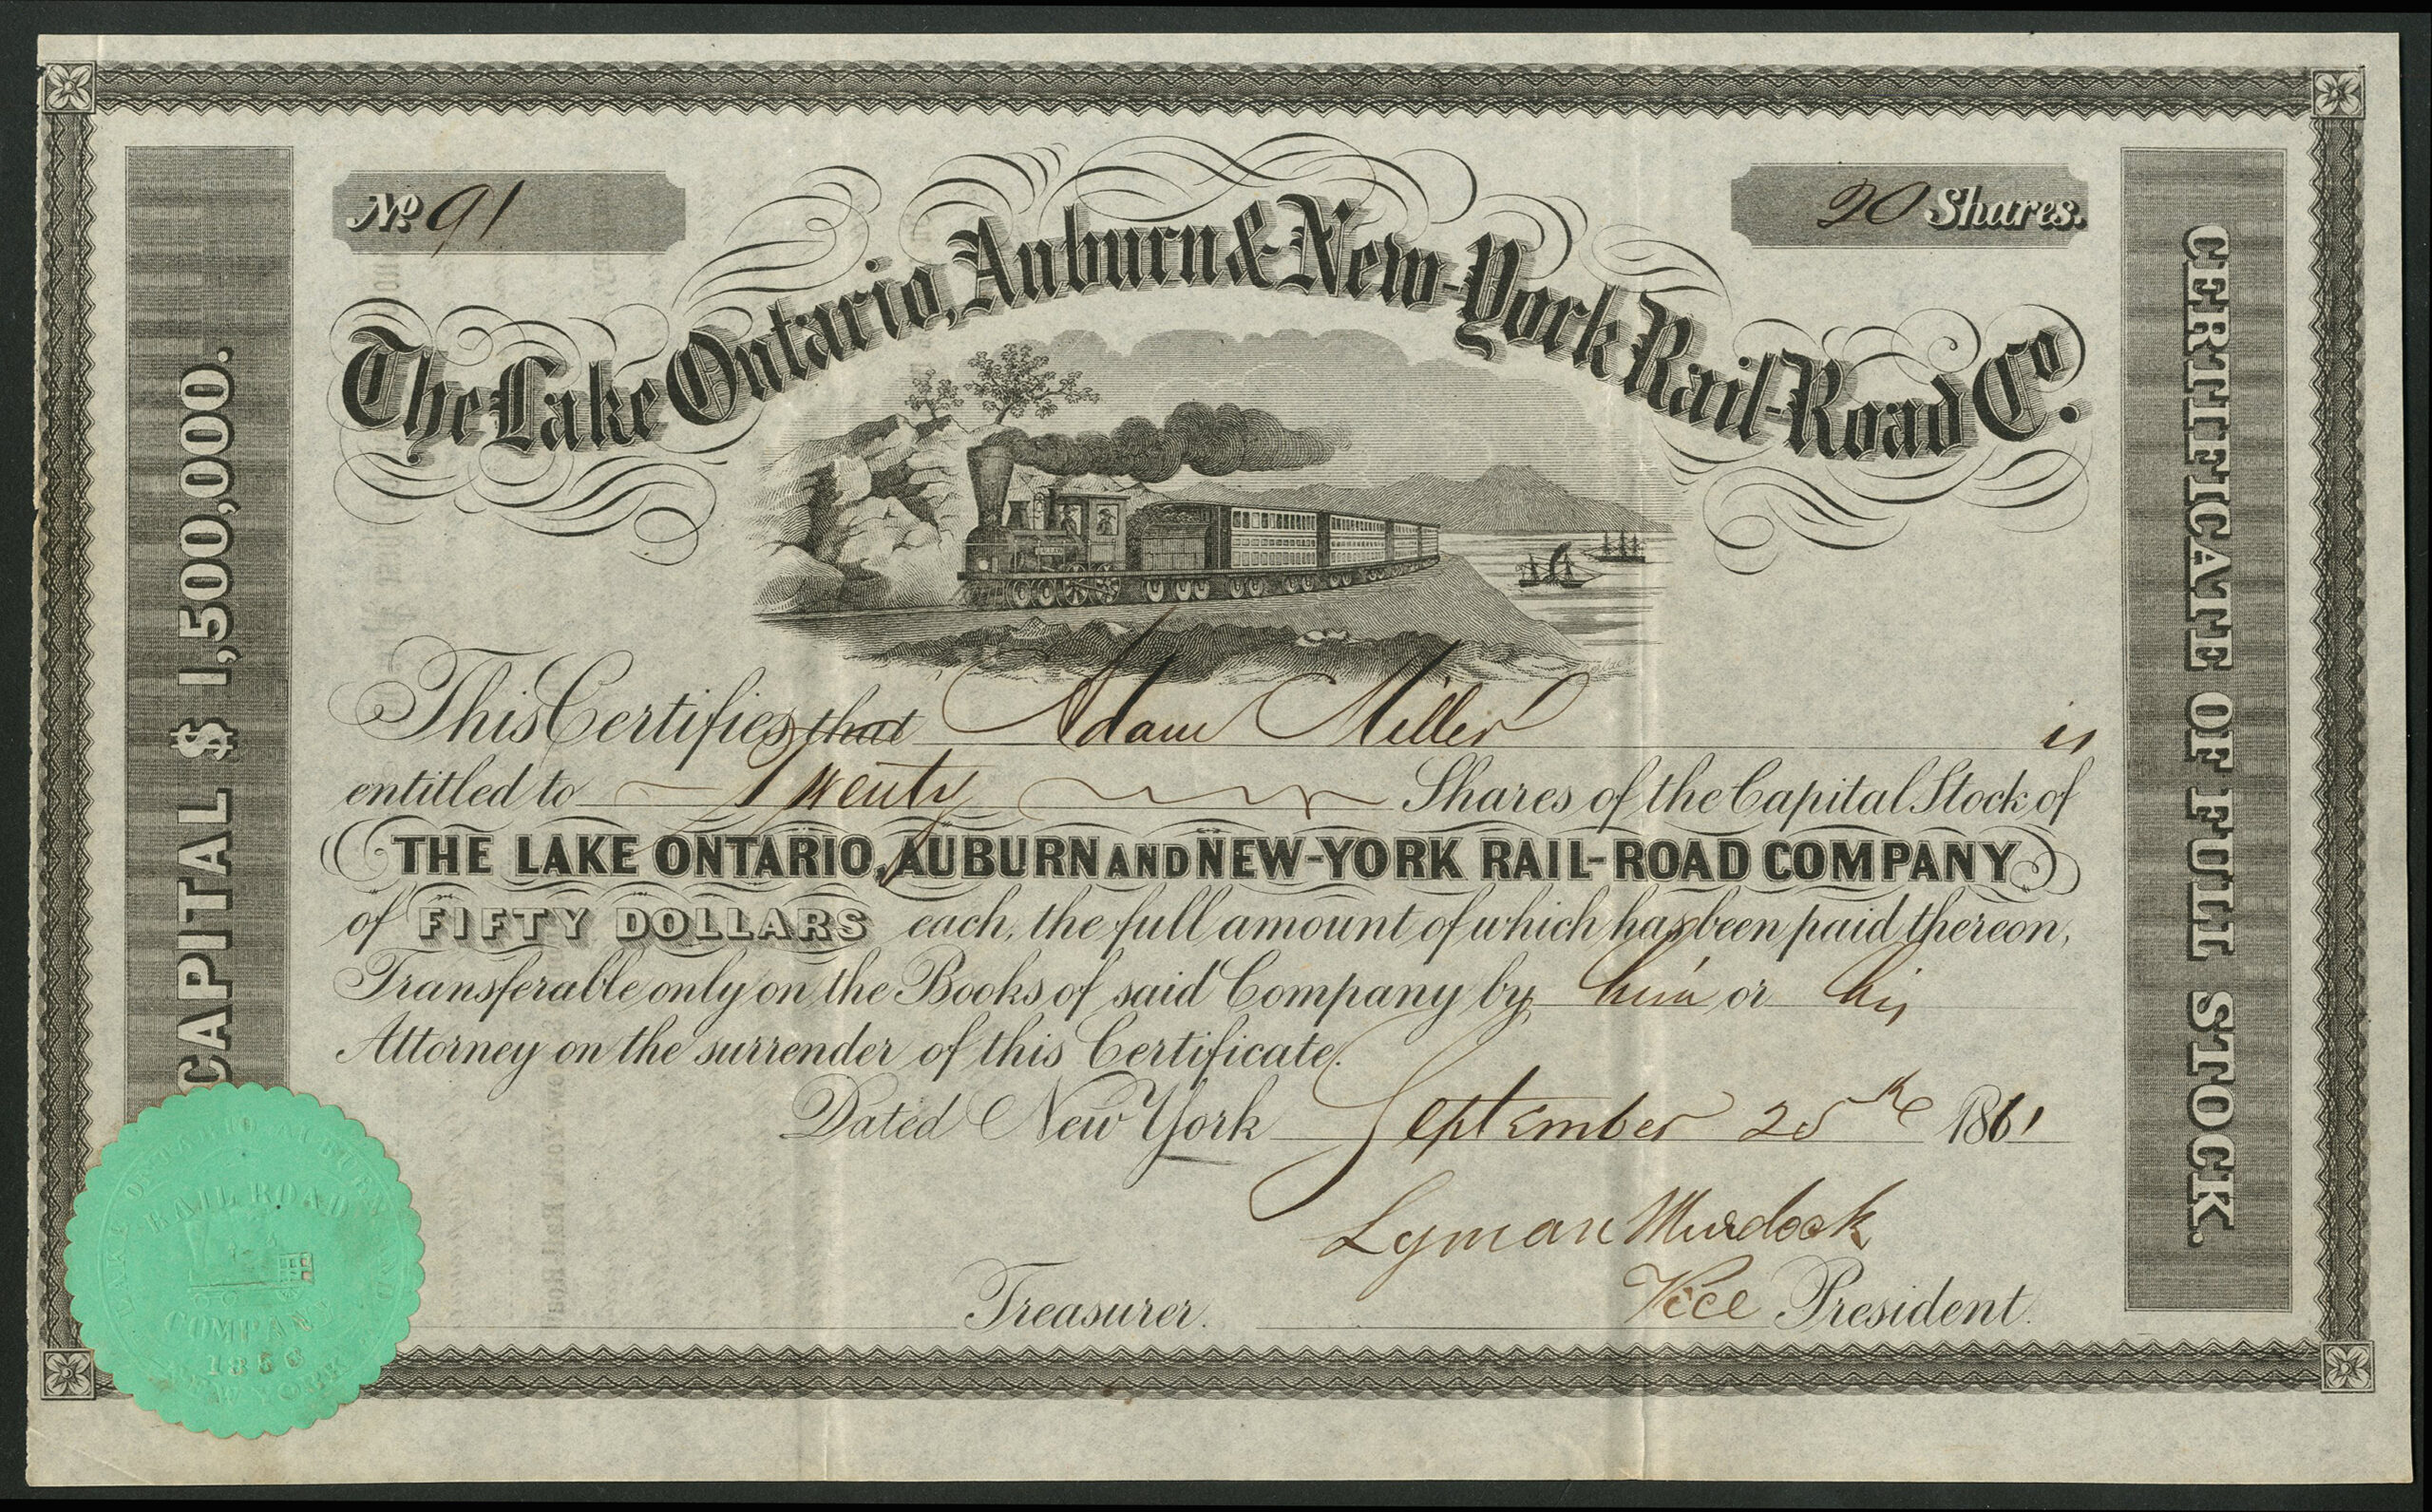 No 91
20 Shares.
The Lake Ontario, Auburn & New-York Rail-Road Co.
CAPITAL $ 1,500,000.
CERTIFICATE OF FULL STOCK.
This Certifies that Adam Miller is
entitled to Twenty Shares of the Capital Stock of
THE LAKE ONTARIO, AUBURN AND NEW-YORK RAIL-ROAD COMPANY
of FIFTY DOLLARS each, the full amount of which has been paid thereon,
Transferable only on the Books of said Company by him or his
Attorney on the surrender of this Certificate.
Dated New York September 25th 1861
Lyman Murdock
Treasurer. Vice President.
LAKE ONTARIO AUBURN AND
RAIL ROAD
COMPANY
1856
NEW YORK